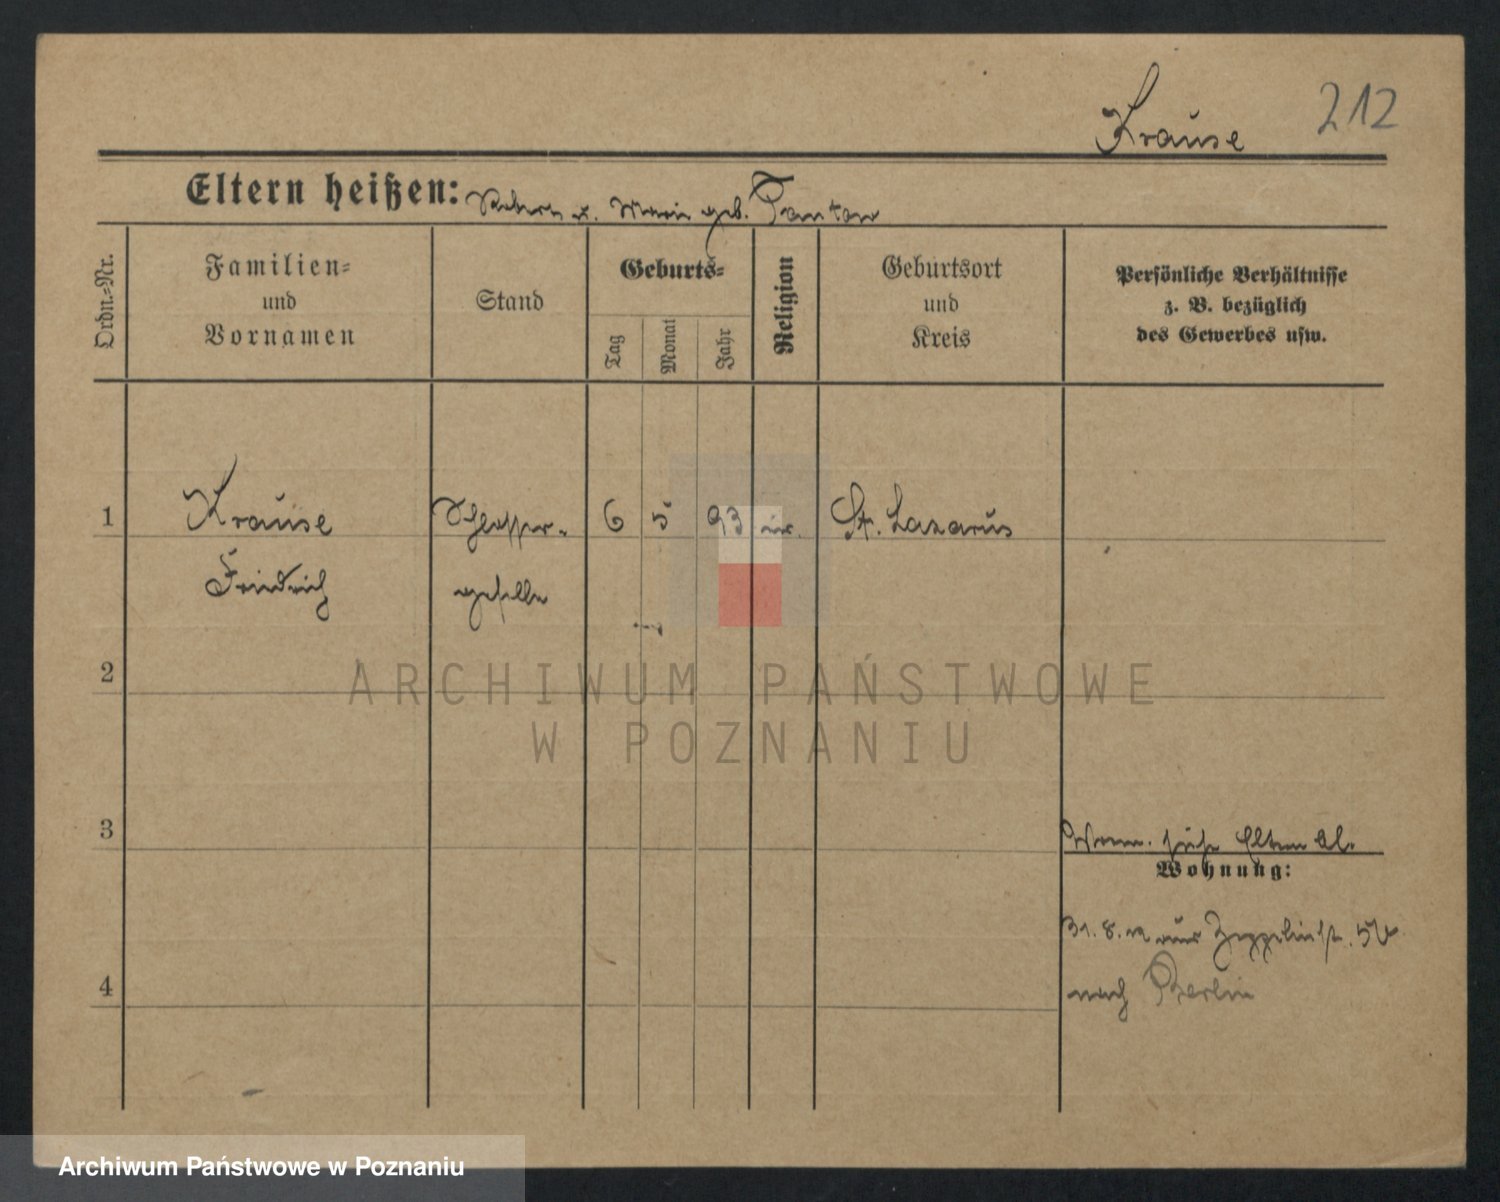 Krause 212
Eltern heißen: Robert u. Marie geb. Tantow
Ordn.=Nr.
Familien=
und
Vornamen
Stand
Geburts=
Tag
Monat
Jahr
Religion
Geburtsort
und
Kreis
Persönliche Verhältnisse
z. B. bezüglich
des Gewerbes usw.
1 Krause Schlosser- 6 5 93 St. Lazarus
Friedrich geselle
2
3
siehe Eltern Bl.
Wohnung:
4
31.8.12 aus Zeppelinstr. 5
nach Berlin
ARCHIWUM PAŃSTWOWE
W POZNANIU
Archiwum Państwowe w Poznaniu